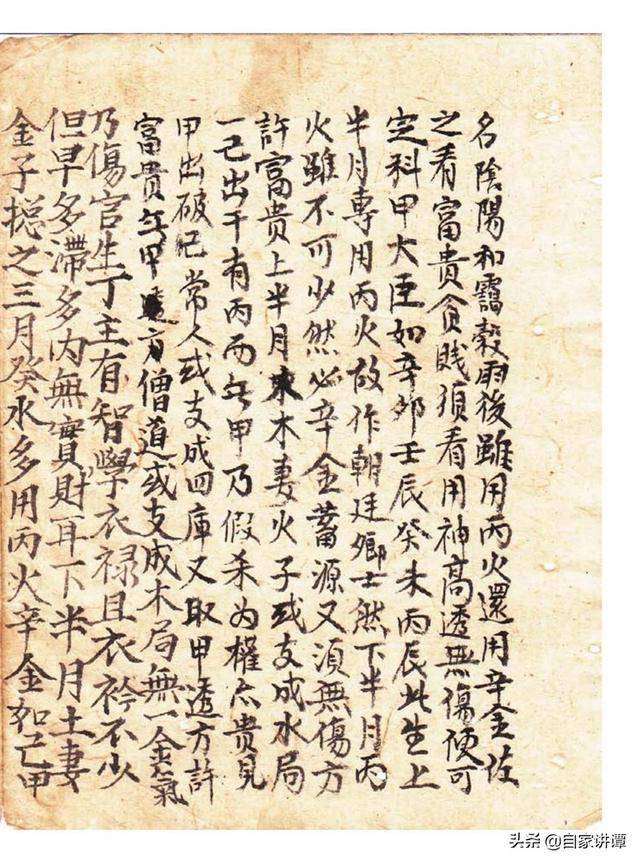 名陰陽和靄穀雨後雖用丙火還用辛金佐
之看富貴貪賤須看用神高透無傷便可
定科甲大臣如辛夘壬辰癸未丙辰此生上
半月專用丙火故作朝廷鄉士然下半月丙
火雖不可少然必辛金蓄源又須無傷方
許富貴上半月木妻火子或支成水局
一己出干有丙而无甲乃假杀为權亦貴見
甲出破己常人或支成四庫又取甲透方許
富貴无甲透方僧道或支成木局無一金氣
乃傷官生丁主有智學衣禄且衣衿不少
但早多滯多内無實財耳下半月土妻
金子摠之三月癸水多用丙火辛金和己甲
头条 @自家讲谭